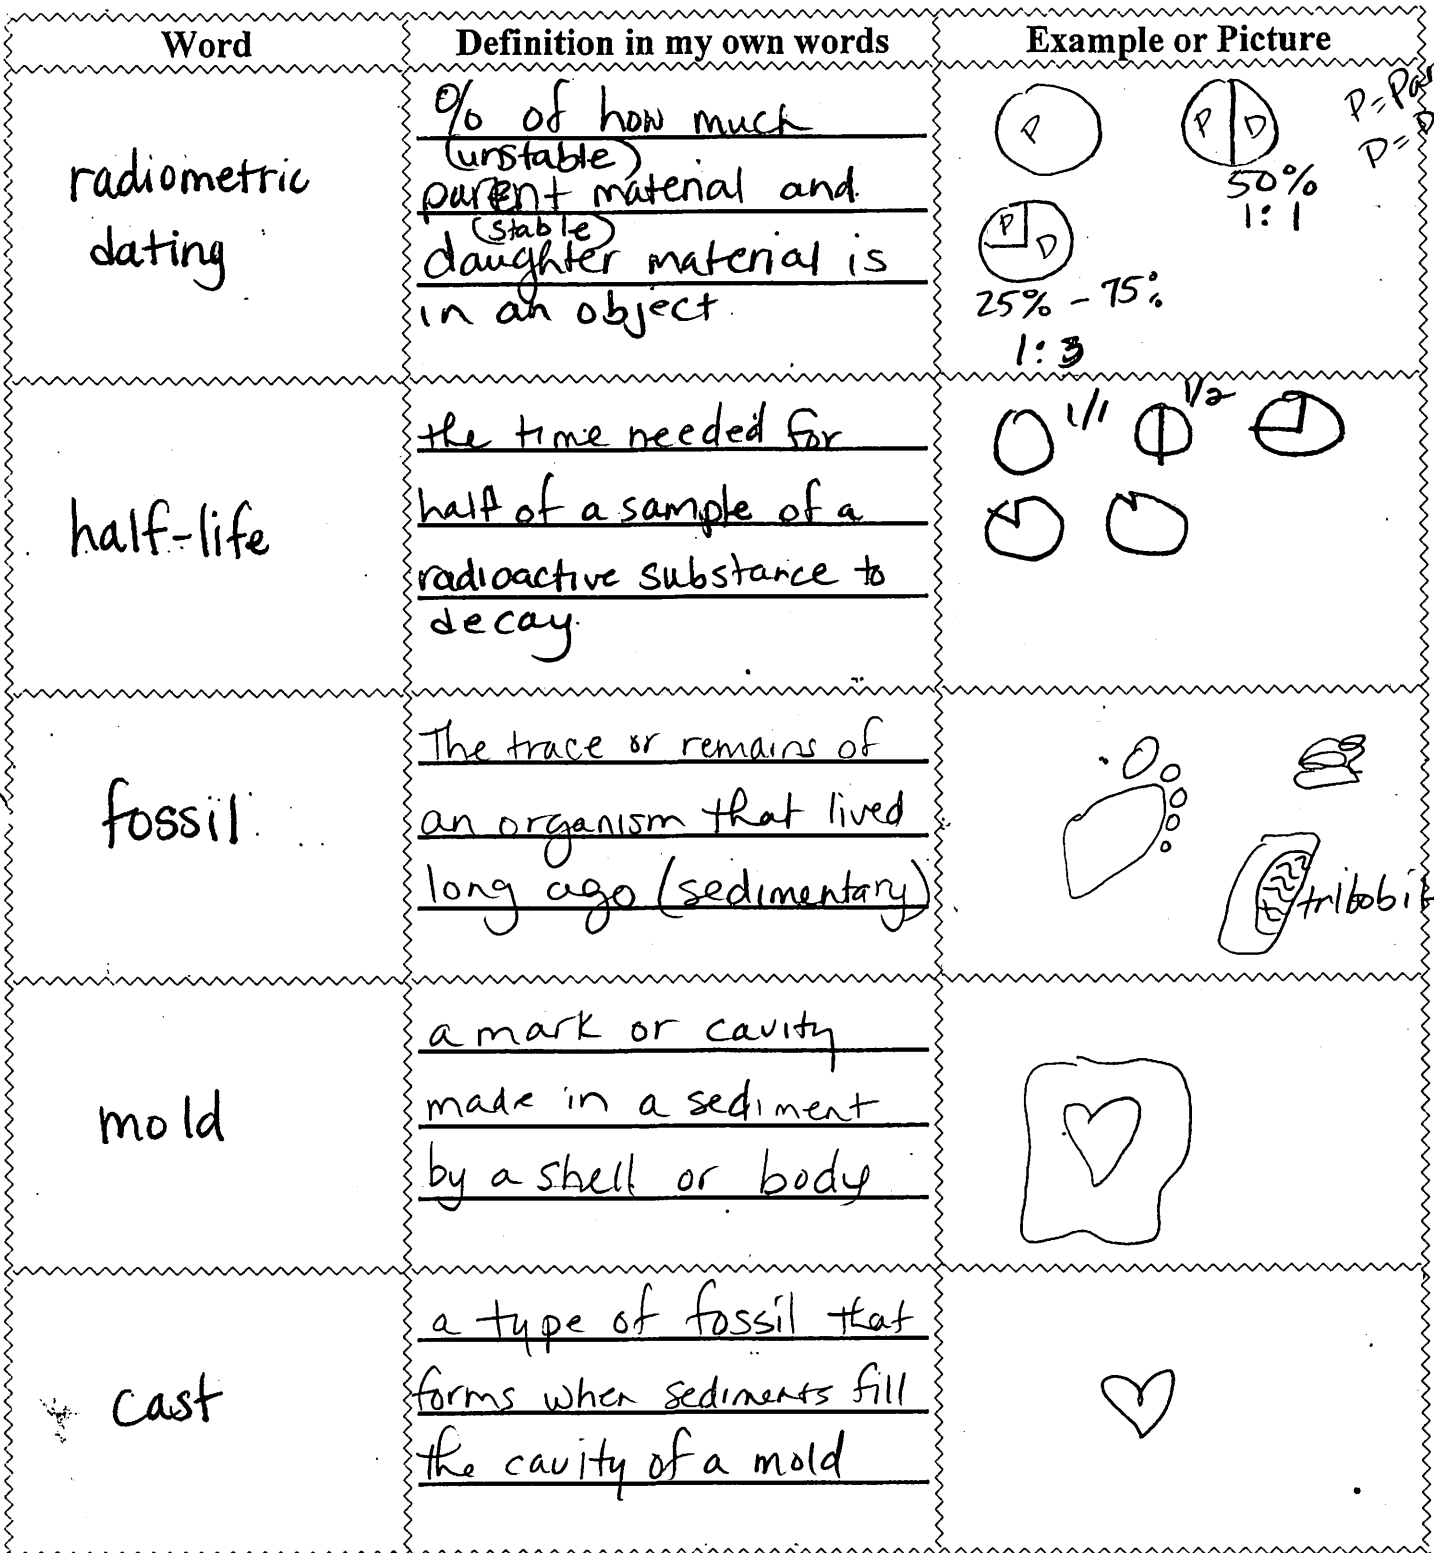 Word
Definition in my own words
Example or Picture
radiometric
dating
% of how much
(unstable)
parent material and
(stable)
daughter material is
in an object.
P
P D
50%
1:1
P D
25% - 75%
1:3
half-life
the time needed for
half of a sample of a
radioactive substance to
decay.
1/1
1/2
fossil
The trace or remains of
an organism that lived
long ago (sedimentary)
mold
a mark or cavity
made in a sediment
by a shell or body
cast
a type of fossil that
forms when sediments fill
the cavity of a mold